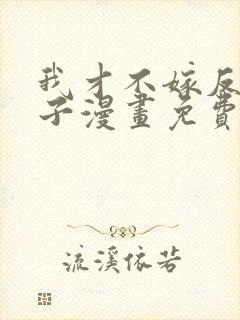 我才不嫁反
子漫畫免費
流溪依若